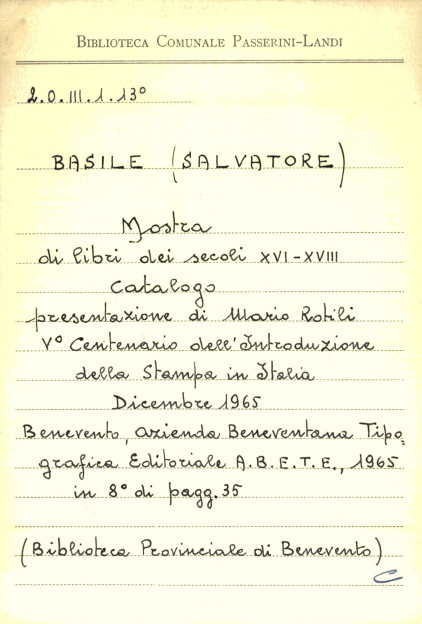 BIBLIOTECA COMUNALE PASSERINI-LANDI
2.O.III.1.13°
BASILE (SALVATORE)
Mostra
di libri dei secoli XVI-XVIII
Catalogo
presentazione di Mario Rotili
V° Centenario dell'Introduzione
della Stampa in Italia
Dicembre 1965
Benevento, Azienda Beneventana Tipo=
grafica Editoriale A.B.E.T.E., 1965
in 8° di pagg. 35
(Biblioteca Provinciale di Benevento)
C